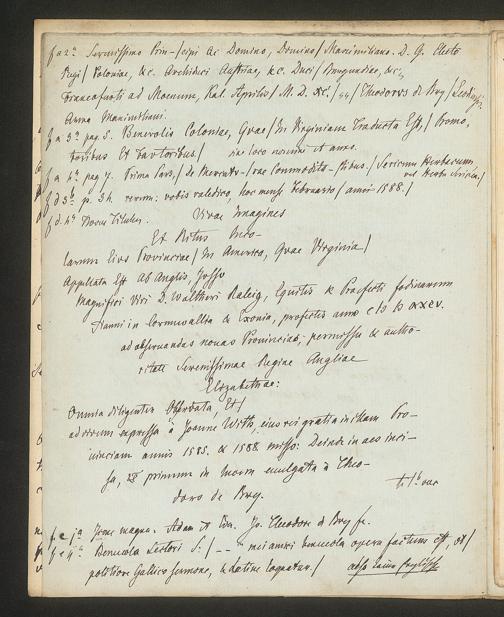 f a 2ª. Serenissimo Prin-/cipi Ac Domino, Domino/ Maximiliano. D. G. Electo
Regi/ Poloniae, &c. Archiduci Austriae, &c. Duci/ Burgundiae, &c.,
Francofurti ad Moenum, Kal. Aprilis/ M. D. XC./ Theodorus de Bry/
Arma Maximiliani.
f a 3ª pag. 5. Benevolis Coloniae, Quae/ In Virginiam Traducta Est,/ Promo,
toribus Et Fautoribus/
pag 7. Prima Pars,/ de Mercatu-/rae Commodita-/tibus./ Sericum Herbaceum
f d 3 p. 34. rerum: vobis valedico, hoc mense Februario/ anni 1588./
f d. 4ª
Vivae Imagines
Et Ritus Inco-
larum Eius Provinciae/ In America, Quae Virginia/
Appellata Est Ab Anglis,
Magnifici Viri D. Waltheri Raleig, Equitis & Praefecti fodinarum
Stanni in Cornwallia & Exonia, profectis anno
ad observandas novas Provincias, permissu & autho-
ritate Serenissimae Reginae Angliae
Elizabethae:
Omnia diligenter Observata, Et/
ad verum expressa à Joanne With, eius rei gratia in illam Pro-
vinciam annis 1585. & 1588 misso: Deinde in aes inci-
sa, Et primum in lucem evulgata à Theo-
doro de Bry.
Adam & Eva. Jo. Theodore de Bry fe.
Benevolo Lectori S:/ _ _ mei amici benevola opera factum est, ut/
politiore Gallico sermone, & Latine loquatur./